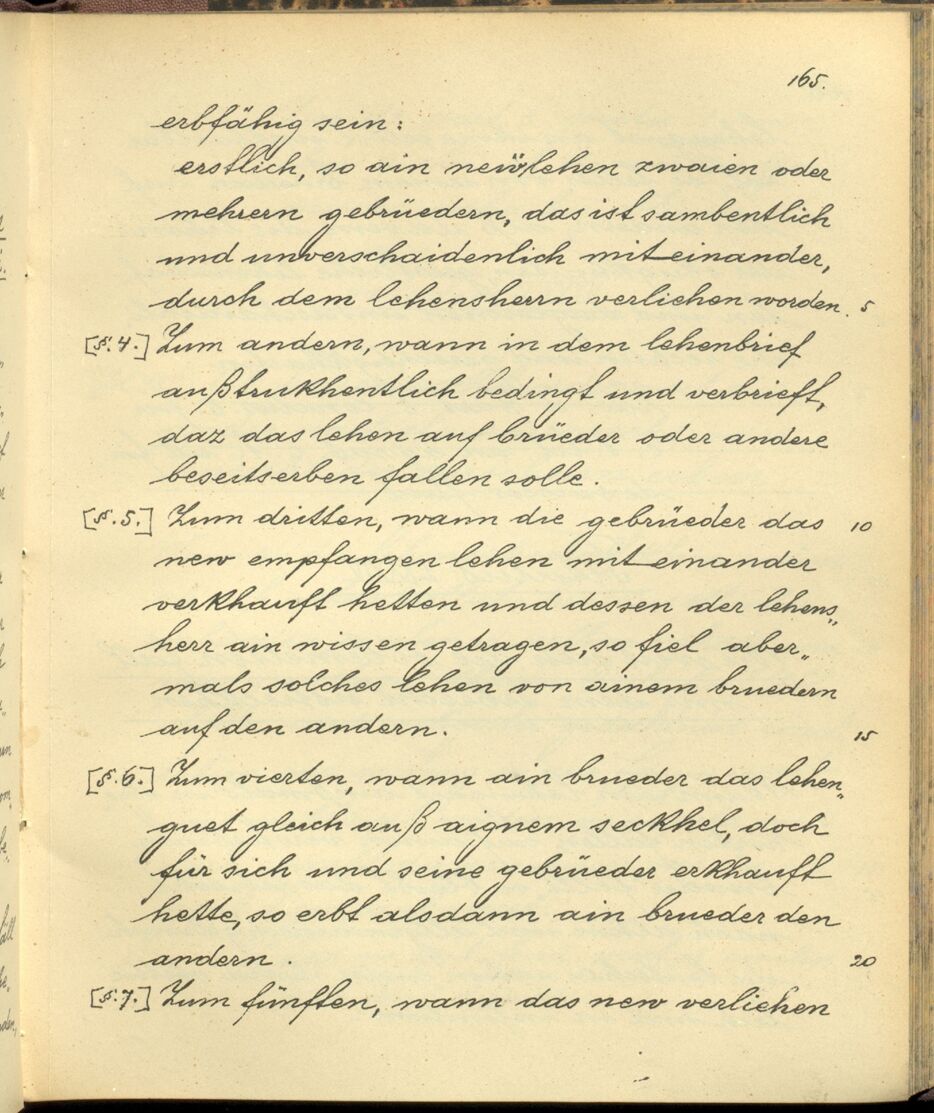 165.
erbfähig sein:
erstlich, so ain neẅlehen zwaien oder
mehrern gebrüedern, das ist sambentlich
und unverschaidenlich mit einander,
durch dem lehensherrn verliehen worden. 5
[§.4.] Zum andern, wann in dem lehenbrief
außtrukhentlich bedingt und verbrieft,
daz das lehen auf brüeder oder andere
beseitserben fallen solle.
[§.5.] Zum dritten, wann die gebrüeder das 10
new empfangen lehen mit einander
verkhauft hetten und dessen der lehens„
herr ain wissen getragen, so fiel aber„
mals solches lehen von ainem bruedern
auf den andern. 15
[§.6.] Zum vierten, wann ain brueder das lehen„
guet gleich auß aignem seckhel, doch
für sich und seine gebrüeder erkhauft
hette, so erbt alsdann ain brueder den
andern. 20
[§.7.] Zum fünften, wann das new verliehen